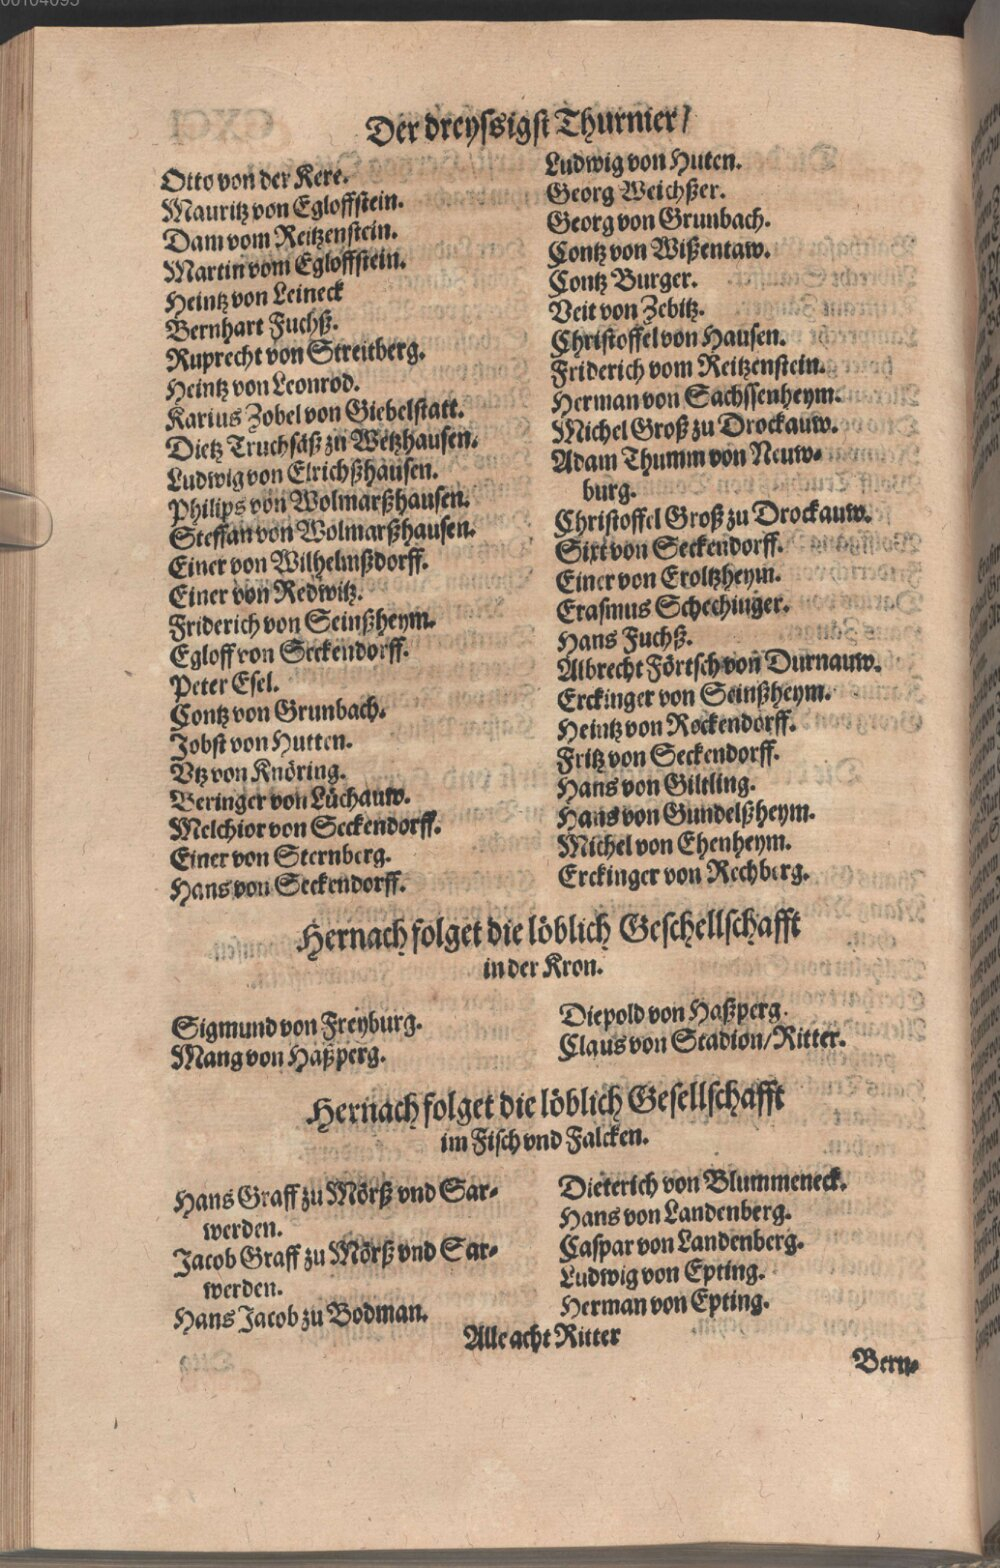 00104095
Der dreyssigst Thurnier/
Otto von der Kere.
Mauritz von Egloffstein.
Dam vom Reitzenstein.
Martin vom Egloffstein.
Heintz von Leineck
Bernhart Fuchß.
Ruprecht von Streitberg.
Heintz von Leonrod.
Karius Zobel von Giebelstatt.
Dietz Truchsäß zu Wetzhausen.
Ludwig von Elrichßhausen.
Philips von Wolmarßhausen.
Steffan von Wolmarßhausen.
Einer von Wilhelmßdorff.
Einer von Redwitz.
Friderich von Seinßheym.
Egloff von Seckendorff.
Peter Esel.
Contz von Grunbach.
Jobst von Hutten.
Vtz von Knöring.
Beringer von Lüchauw.
Melchior von Seckendorff.
Einer von Sternberg.
Hans von Seckendorff.
Ludwig von Huten.
Georg Weichßer.
Georg von Grunbach.
Contz von Wißentaw.
Contz Burger.
Veit von Zebitz.
Christoffel von Hausen.
Friderich vom Reitzenstein.
Herman von Sachssenheym.
Michel Groß zu Drockauw.
Adam Thumm von Neuw-
burg.
Christoffel Groß zu Drockauw.
Sixt von Seckendorff.
Einer von Eroltzheym.
Erasmus Schechinger.
Hans Fuchß.
Albrecht Förtsch von Durnauw.
Erckinger von Seinßheym.
Heintz von Rockendorff.
Fritz von Seckendorff.
Hans von Giltling.
Hans von Gundelßheym.
Michel von Ehenheym.
Erckinger von Rechberg.
Hernach folget die löblich Geschellschafft
in der Kron.
Sigmund von Freyburg.
Mang von Haßperg.
Diepold von Haßperg.
Claus von Stadion/Ritter.
Hernach folget die löblich Gesellschafft
im Fisch vnd Falcken.
Hans Graff zu Mörß vnd Sar-
werden.
Jacob Graff zu Mörß vnd Sar-
werden.
Hans Jacob zu Bodman.
Dieterich von Blummeneck.
Hans von Landenberg.
Caspar von Landenberg.
Ludwig von Epting.
Herman von Epting.
Alle acht Ritter
Bern-